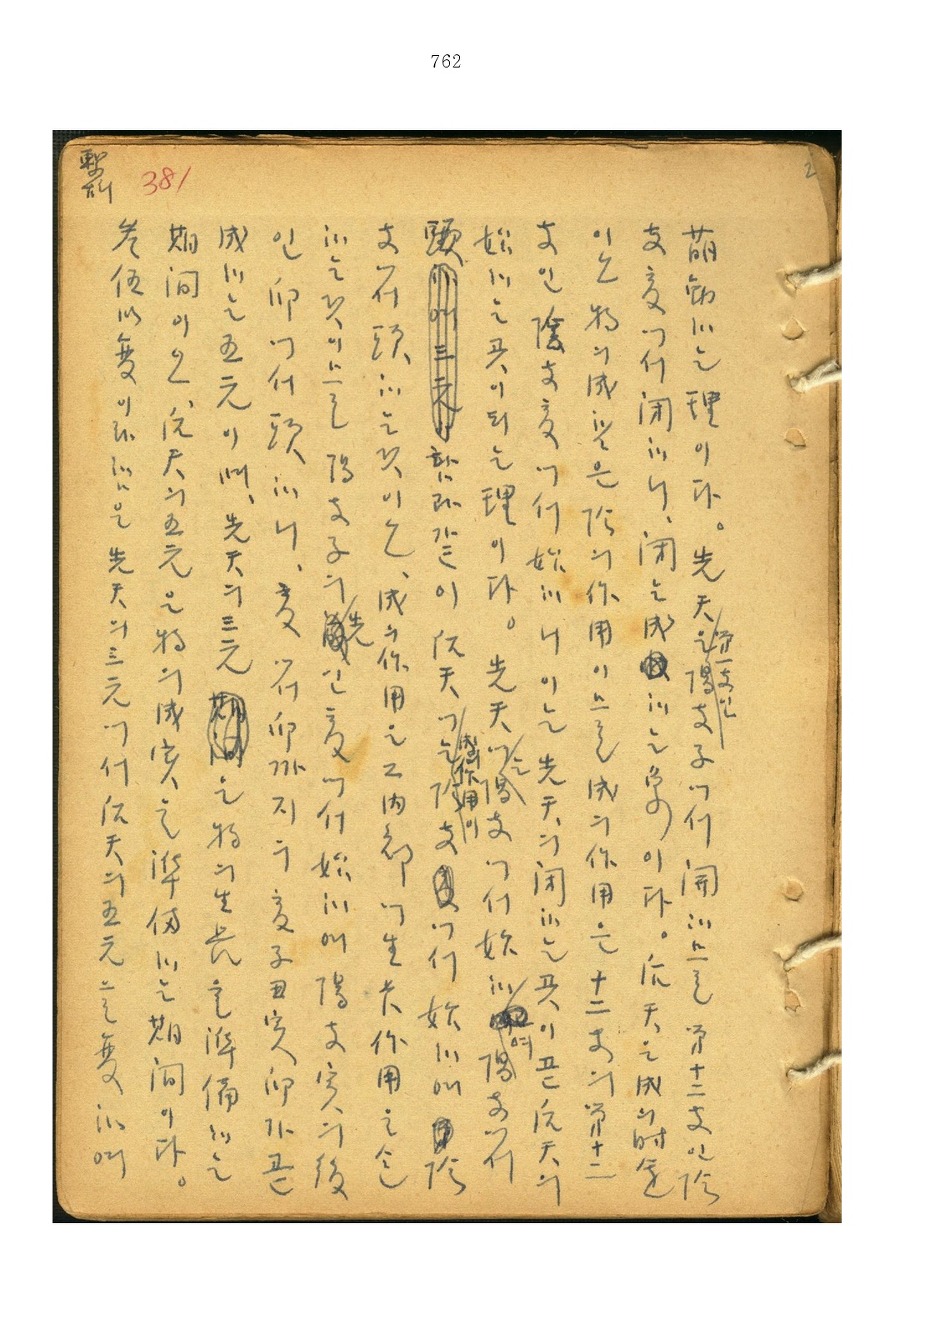 762
繫辭 381
2
萌動하는 理이다。先天은 第一支인 陽支子에서 開하므로 第十二支인 陰
支亥에서 閉하니、閉는 成하는 象이다。后天는 成의 時運
이오 物의 成實은 陰의 作用이므로 成의 作用은 十二支의 第十二
支인 陰支亥에서 始하니 이는 先天의 閉하는 곳이 곧 后天의
始하는 곳이 되는 理이다。先天는 陽支에서 始하여 陽支에서
頭 后天에는 成의 作用이 陰支에서 始하매 陰
支에서 頭하는 것이오、成의 作用은 그 內部에 生長作用을
하는 것이므로 陽支子의 先인 亥에서 始하매 陽支寅의 後
인 卯에서 頭하니、亥에서 卯까지의 亥子丑寅卯가 곧
成하는 五元이며、先天의 三元은 物의 生長을 準備하는
期間이오、后天의 五元은 物의 成實을 準備하는 期間이다。
參伍以變이라 함은 先天의 三元에서 后天의 五元으로 變하매